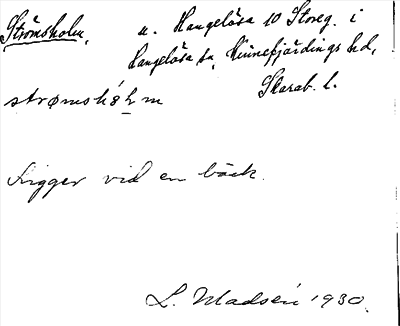 Strömsholm, u. Hangelösa 10 Storeg. i
Hangelösa sn, Kinnefjärdings hd,
Skarab. l.
strømshòl̲m
Ligger vid en bäck.
L. Madsén 1930.